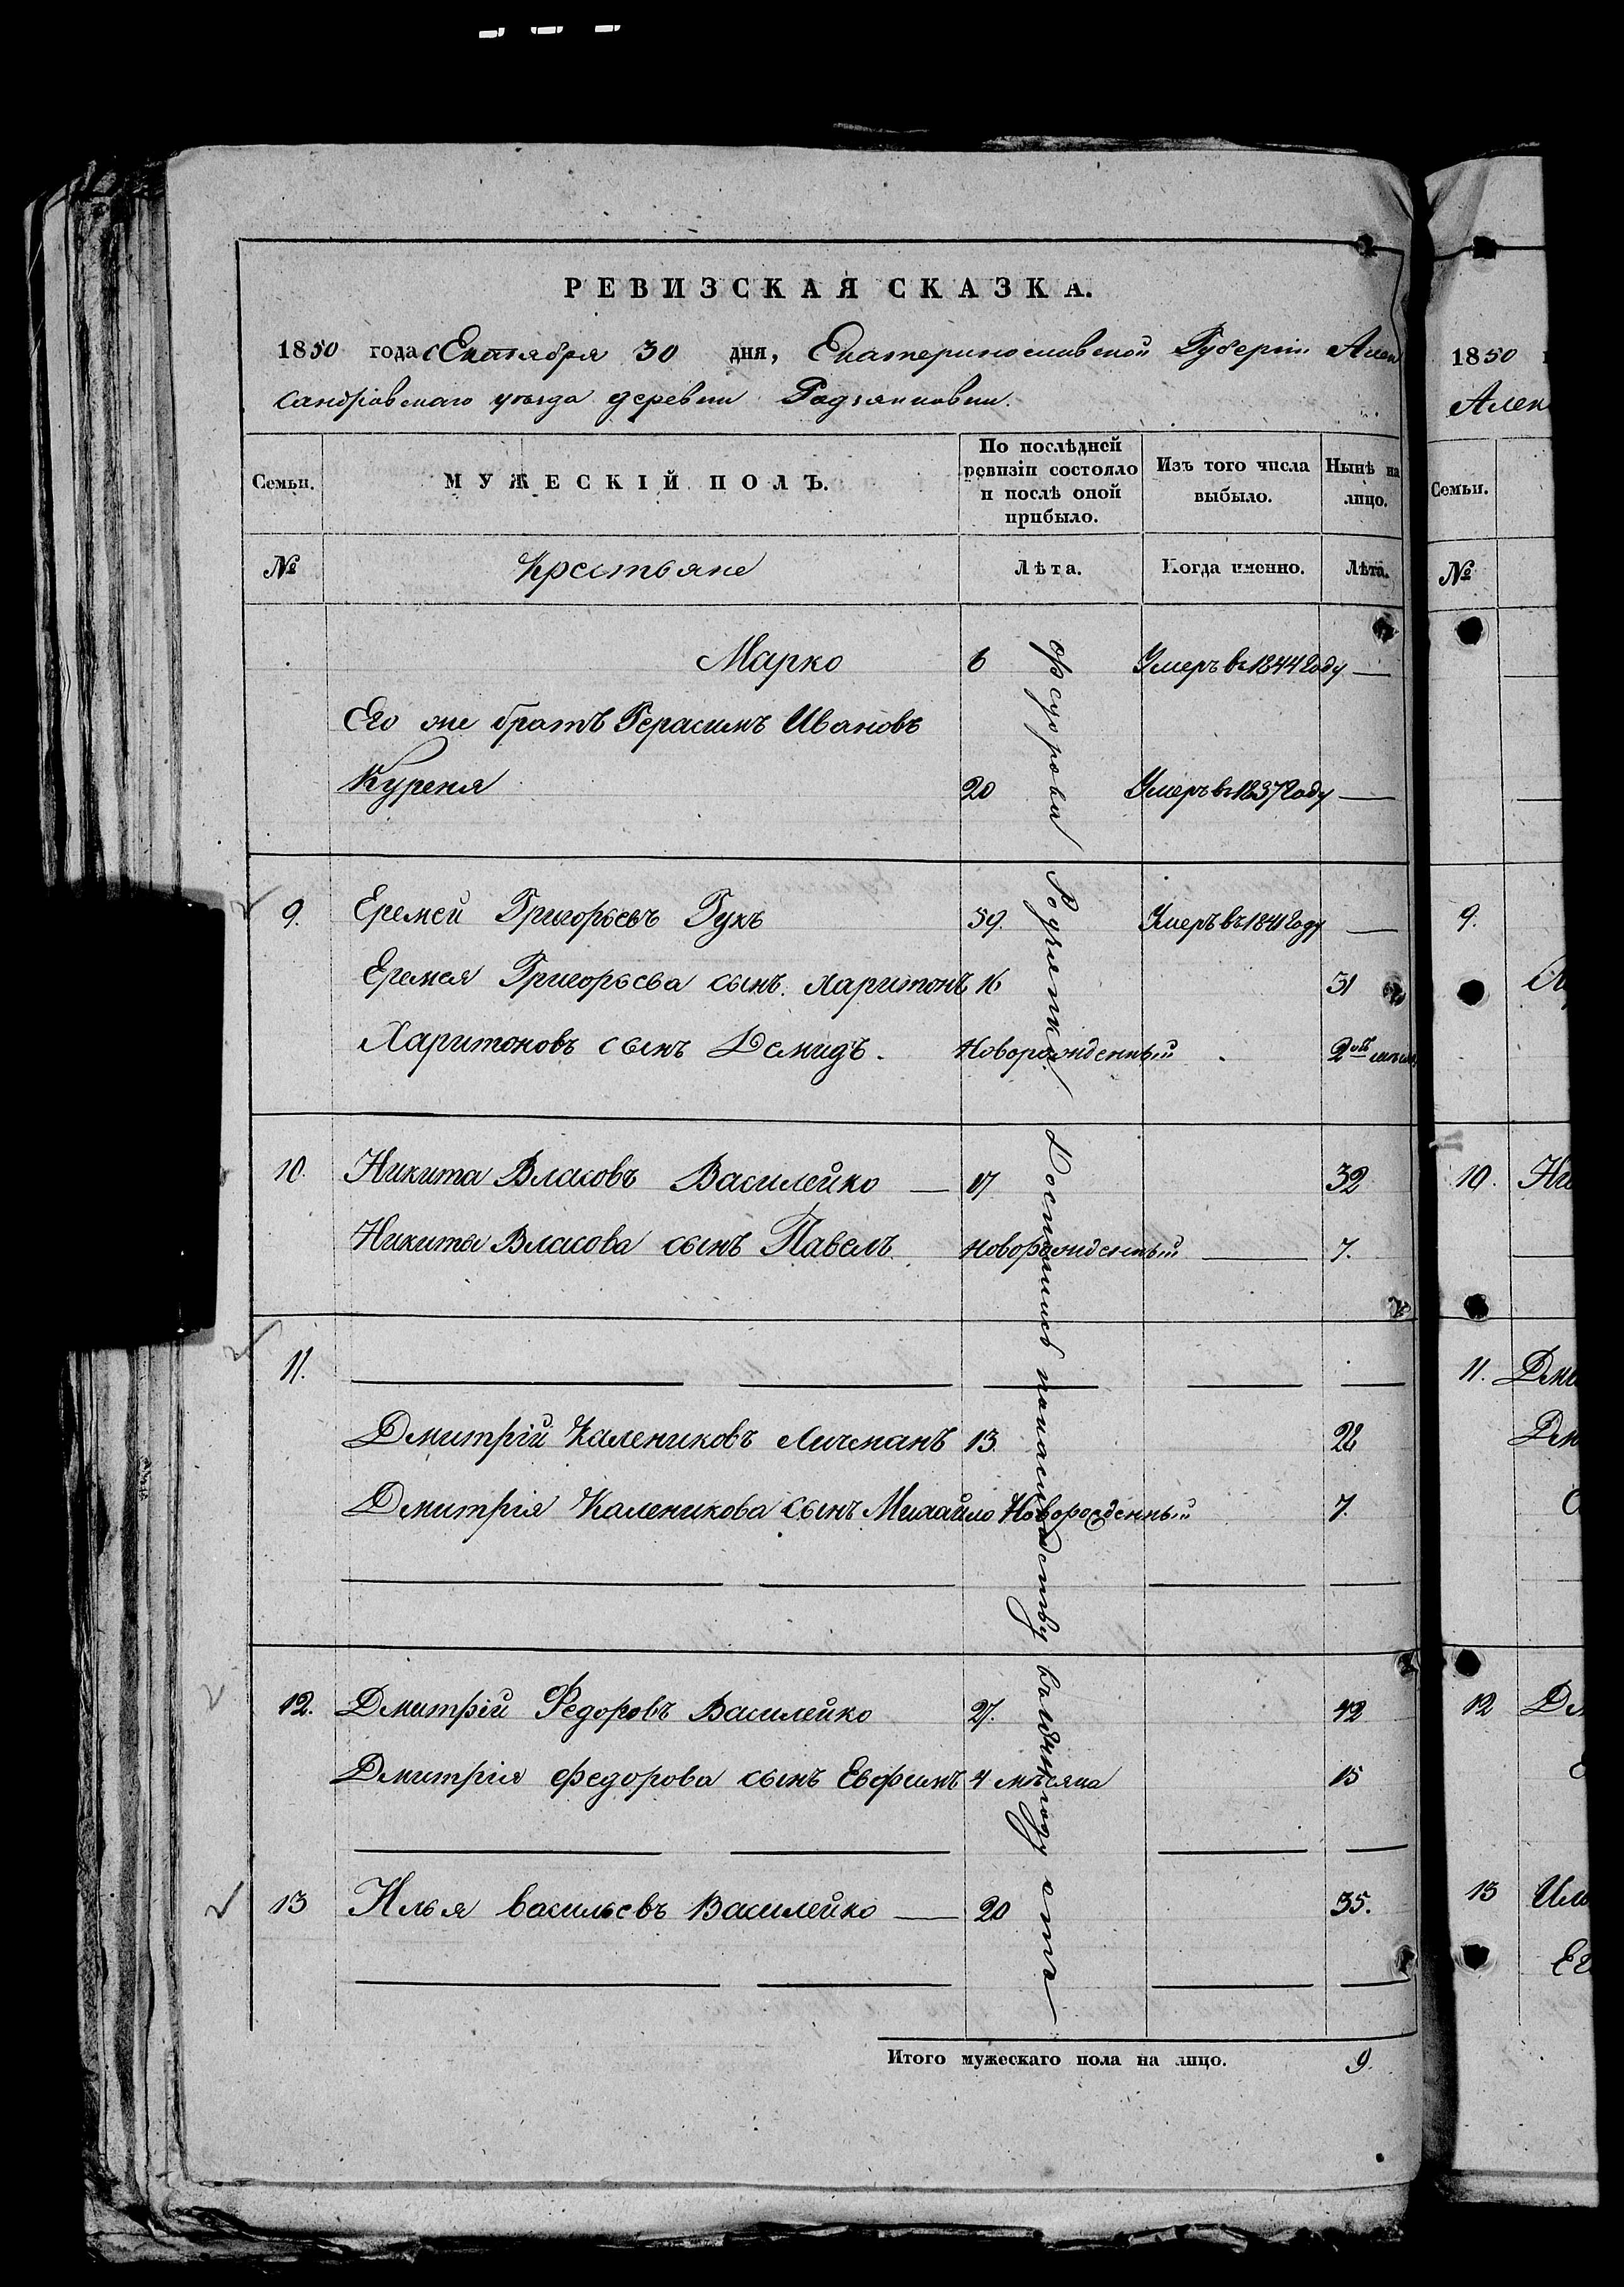 РЕВИЗСКАЯ СКАЗКА.
1850 года Сентября 30 дня, Екатеринославской Губерніи Алек
сандровскаго уѣзда деревни Родзянковки.
Семьи. МУЖЕСКІЙ ПОЛЪ. По послѣдней ревизіи состояло и послѣ оной прибыло. Изъ того числа выбыло. Нынѣ на лицо.
№ Крестьяне Лѣта. Когда именно. Лѣта.
Марко 6 Умеръ въ 1844 году —
Его же братъ Герасимъ Ивановъ
Куреня 20 Умеръ въ 1837 году —
9. Еремей Григорьевъ Гукъ 59. Умеръ въ 1841 году —
Еремея Григорьева сынъ Харитонъ 16 31
Харитоновъ сынъ Демидъ. Новорожденный 2
10. Никита Власовъ Василейко — 17 32
Никиты Власова сынъ Павелъ Новорожденный — 7.
11.
Дмитрій Калениковъ Личманъ 13 28
Дмитрія Каленикова сынъ Михайло Новорожденный 7.
12. Дмитрій Федоровъ Василейко 27. 42
Дмитрія Федорова сынъ Евфимъ 4 мѣсяца 15
13 Илья Васильевъ Василейко — 20 35.
Итого мужескаго пола на лицо. 9.
Родзянки Достались по наслѣдству въ году
1850
Алек
Семьи.
№
9.
10. Ни
11. Дми
Дм
12 Дм
13 Иль
Ег